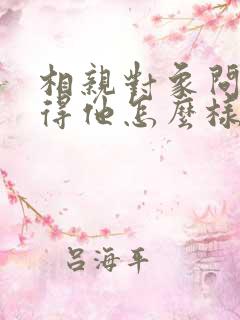 相親對象問
得他怎麼樣
呂海平